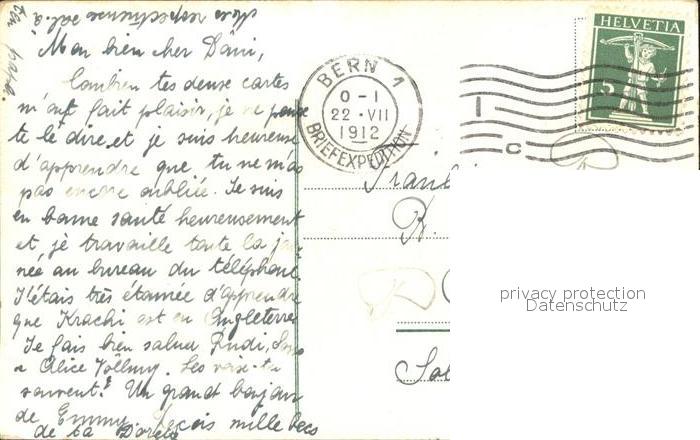 Mon bien cher Däni,
Combien tes deuse cartes
m'ont fait plaisir, je ne pense
te le dire, et je suis heureuse
d'apprendre que tu ne m'as
pas encore oubliée. Je suis
en bonne santé heureusement
et je travaille toute la jour-
née au bureau du téléphone
J'étais très étonnée d'apprendre
que Krachi est en Angleterre
Je fais bien saluer Rudi,
Alice Les vois-tu
souvent? Un grand bonjour
de Emmy. Reçois mille becs
de ta
BERN 1
0-1
22.VII
1912
BRIEFEXPEDITION
HELVETIA
5
privacy protection
Datenschutz